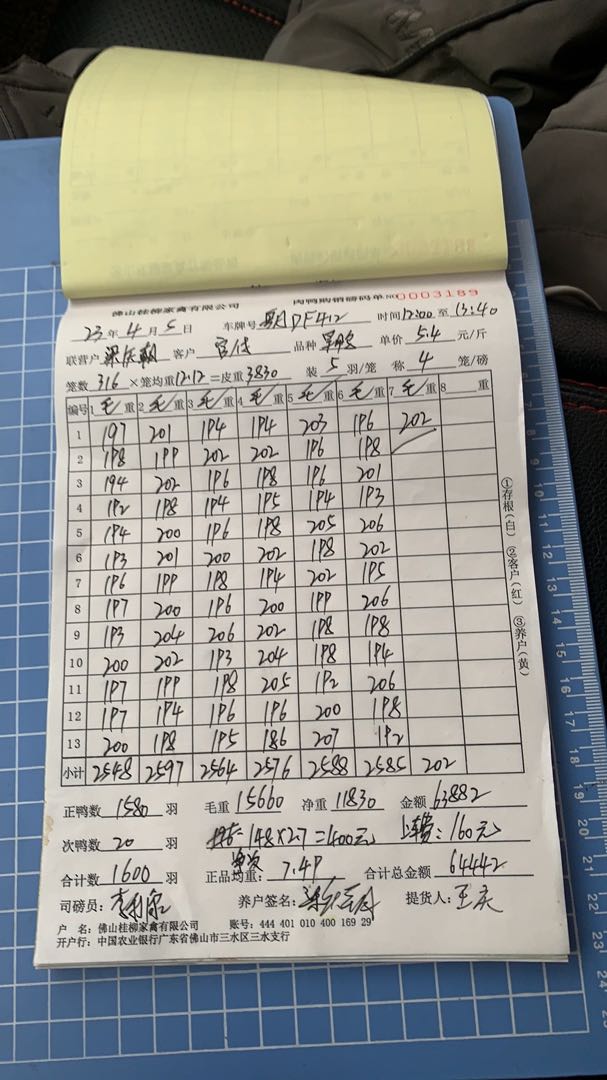 佛山桂柳家禽有限公司 肉鸭购销磅码单 NO 0003189
23年4月5日 车牌号 DF412 时间 12:00 至 13:40
联营户 客户 品种 单价 5.4 元/斤
笼数 316 ×笼均重 12.12 =皮重 3830 装 5 羽/笼 称 4 笼/磅
编号 1 毛/重 2 毛/重 3 毛/重 4 毛/重 5 毛/重 6 毛/重 7 毛/重 8 重
1 197 201 194 194 203 196 202
2 198 199 202 202 196 198
3 194 202 196 198 196 201
4 192 198 194 195 194 193
5 194 200 196 198 205 206
6 193 201 200 202 198 202
7 196 199 198 194 202 195
8 197 200 196 200 199 206
9 193 204 206 202 198 198
10 200 202 193 204 198 194
11 197 199 198 205 192 206
12 197 194 196 196 200 198
13 200 198 195 186 207 192
小计 2548 2597 2564 2576 2588 2585 202
①存根(白) ②客户(红) ③养户(黄)
正鸭数 1580 羽 毛重 15660 净重 11830 金额 63882
次鸭数 20 羽 148×2.7=400元 上车费:160元
合计数 1600 羽 正品均重: 7.49 合计总金额 64442
司磅员: 养户签名: 提货人:
户 名:佛山桂柳家禽有限公司 账号:444 401 010 400 169 29
开户行:中国农业银行广东省佛山市三水区三水支行